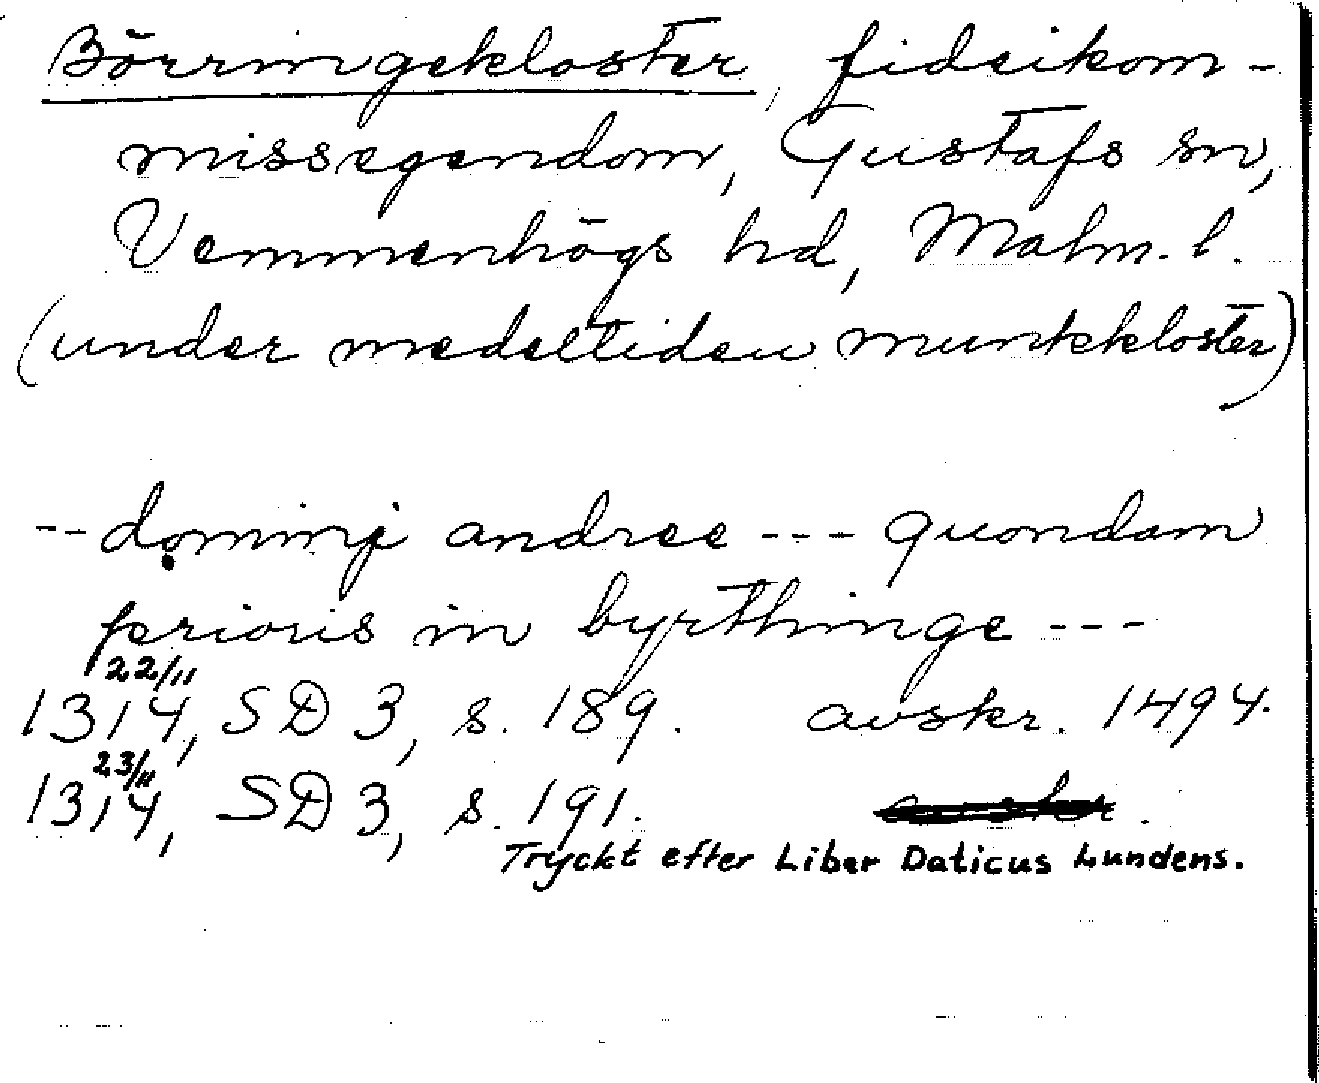 Börringekloster, fideikom-
missegendom, Gustafs sn,
Vemmenhögs hd, Malm. l.
(under medeltiden munkkloster)
-- domini andree --- quondam
prioris in byrthinge ---
22/11
1314, SD 3, s. 189. avskr. 1494.
23/11
1314, SD 3, s. 191.
Tryckt efter Liber Daticus Lundens.